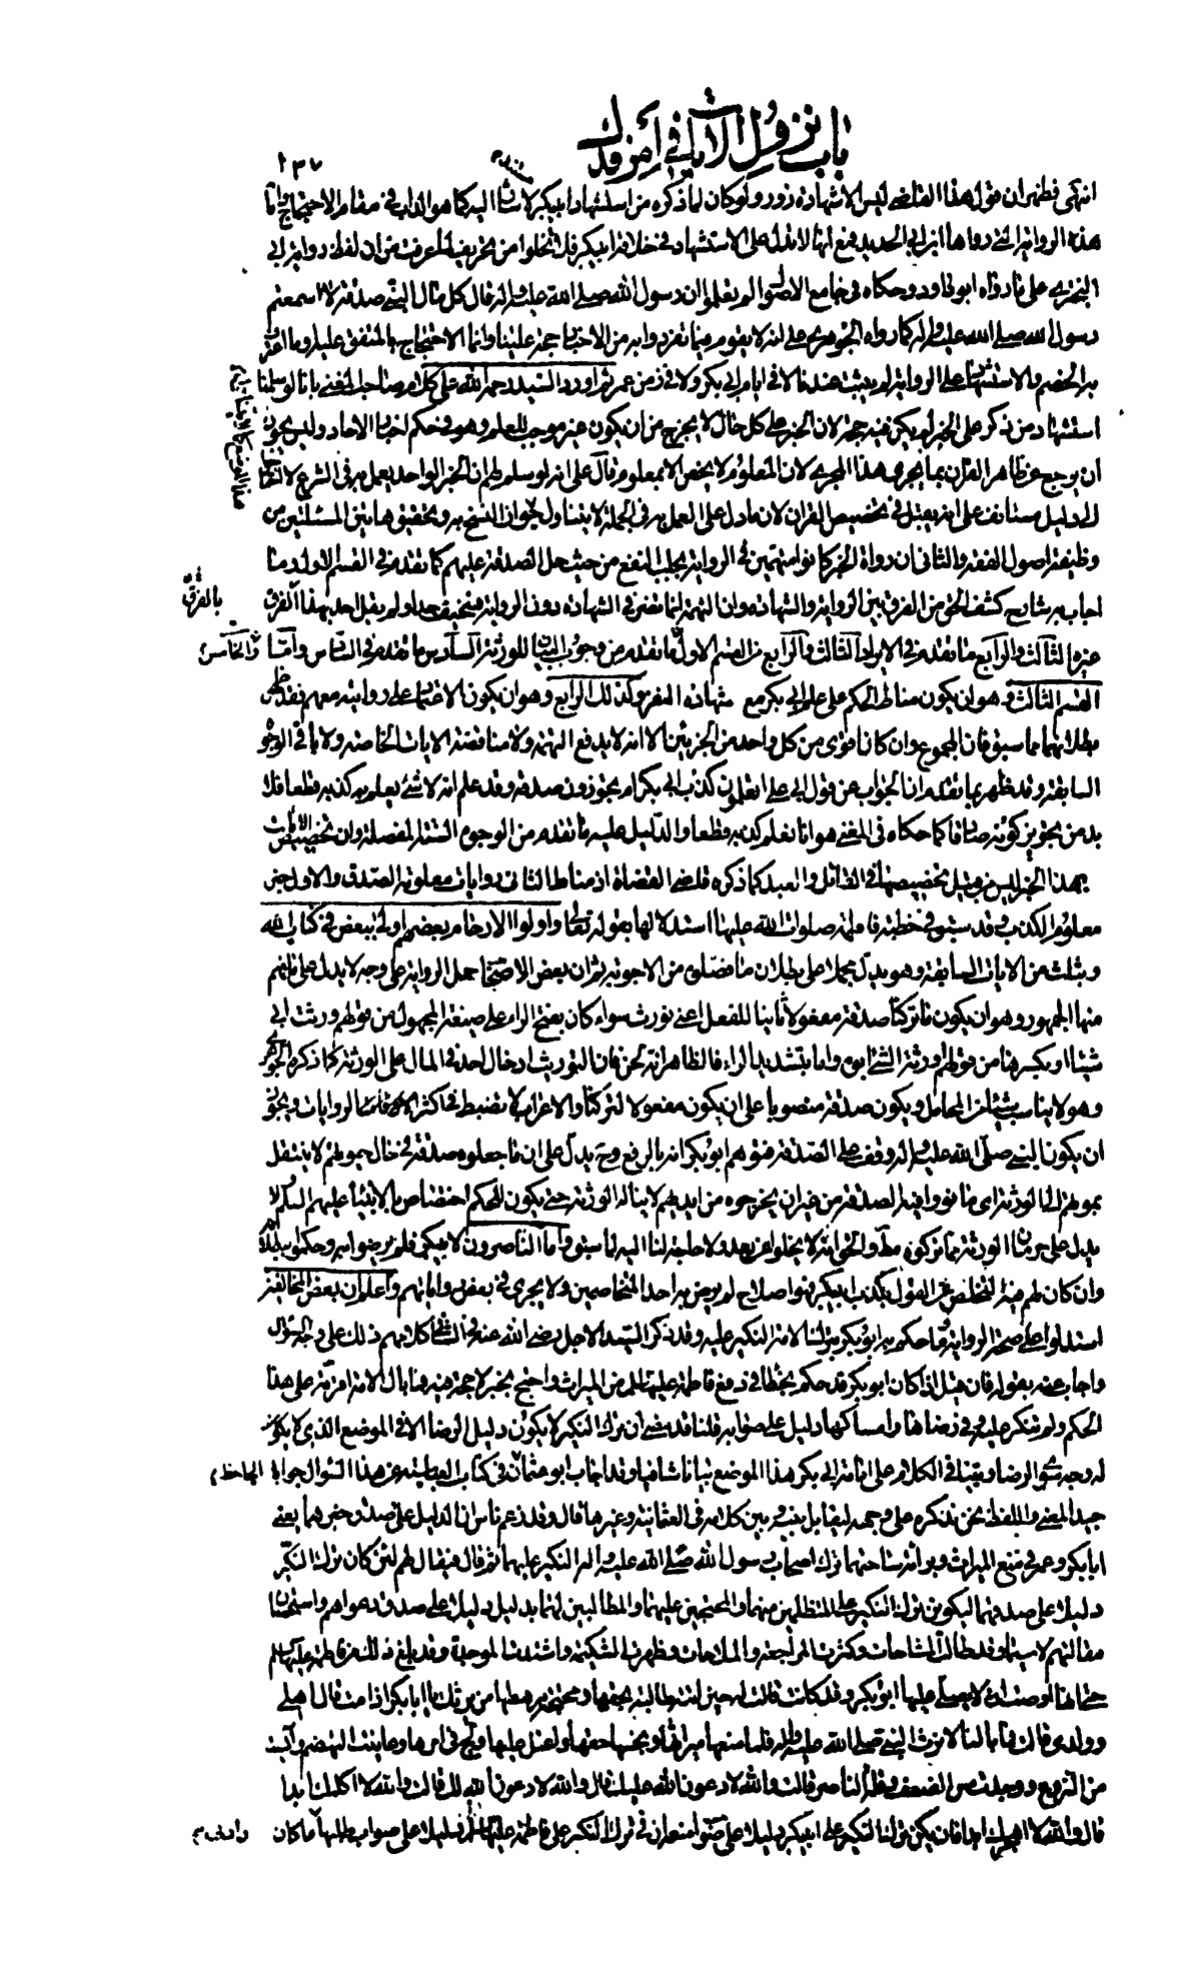 باب نزول الآيات في أمر فدك
١٣٧
انتهى فظهر ان قول هذا القاضي ليس الا شهادة زور ولو كان لما ذكره من استشهاد ابي بكر لاشار اليه كما هو الداب في مقام الاحتجاج واما
هذه الرواية التي رواها ابن ابي الحديد فمع انها لا تدل على الاستشهاد في خلافة ابي بكر فلا تخلوا من تحريف لما عرفت من ان لفظ رواية ابي
البختري على ما رواه ابو داود وحكاه في جامع الاصول الم تعلموا ان رسول الله صلى الله عليه واله قال كل مال النبي صدقة لا اسمعتم
رسول الله صلى الله عليه واله كما رواه الجوهري على انه لا يقوم فيما تفرد وا به من الاخبار حجة علينا وانما الاحتجاج بالمتفق عليه وما اعترف
به الخصم والاستشهاد على الرواية لم يثبت عندنا لا في ايام ابي بكر ولا في زمن عمر ثم اورد السيد رحمه الله على كلام صاحب المغني بانا لو سلمنا
استشهاد من ذكر على الخبر لم يكن فيه حجة لان الخبر على كل حال لا يخرج من ان يكون غير موجب للعلم وهو في حكم اخبار الاحاد وليس يجوز
ان يرجع عن ظاهر القران بما يجري هذا المجرى لان المعلوم لا يخص الا بمعلوم قال على انه لو سلم لهم ان الخبر الواحد يعمل به في الشرع لاحتاجوا
الى دليل مستانف على انه يقبل في تخصيص القران لان ما دل على العمل به في الجملة لا يتناول جواز النسخ به وتحقيق هاتين المسئلتين من
وظيفة اصول الفقه والثاني ان رواة الخبر كانوا متهمين في الرواية بجلب النفع من حيث حل الصدقة عليهم كما تقدم في القسم الاول وما
اجاب به شارح كشف الحق من الفرق بين الرواية والشهادة وان التهمة انما تضر في الشهادة دون الرواية فسخيف جدا ولم يقل احد بهذا الفرق
بالفرق
غيره الثالث والرابع ما تقدم في الايراد الثالث والرابع من القسم الاول ما تقدم من وجوب البيان للورثة السادس ما تقدم في السادس واما
والخامس
القسم الثالث وهو ان يكون مناط الحكم على علم ابي بكر مع شهادة النفر وكذلك الرابع وهو ان يكون الاعتماد على روايته معهم فقد ظهر
بطلانهما مما سبق فان المجموع وان كان اقوى من كل واحد من الجزئين الا انه لا يدفع التهمة ولا مناقضة الايات الخاصة ولا باقي الوجوه
السابقة وقد ظهر بما تقدم ان الجواب عن قول ابي علي اتعلمون كذب ابي بكر ام تجوزون صدقه وقد علم انه لا شئ يعلم به كذبه قطعا فلا
بد من تجويز كونه صادقا كما حكاه في المغني هو انا نعلم كذبه قطعا والدليل عليه ما تقدم من الوجوه الستة المفصلة وان تخصيص الآيات
بهذا الخبر ليس من قبيل تخصيصها في القاتل والعبد كما ذكره قاضي القضاة اذ مناط الثاني روايات معلومة الصدق والاول خبر
معلوم الكذب وقد سبق في خطبة فاطمة صلوات الله عليها استدلالها بقوله تعالى واولوا الارحام بعضهم اولى ببعض في كتاب الله
وبثلث من الايات السابقة وهو يدل مجملا على بطلان ما فصلوه من الاجوبة ثم ان بعض الاصحاب حمل الرواية على وجه لا يدل على ما فهم
منها الجمهور وهو ان يكون ما تركنا صدقة مفعولا ثانيا للفعل اعني نورث سواء كان بفتح الراء على صيغة المجهول من قولهم ورثت ابي
شيئا او بكسرها من قولهم اورثه الشئ ابوه واما بتشديد الراء فالظاهر انه لحن فان التوريث ادخال احد في المال على الورثة كما ذكره الجوهري
وهو لا يناسب شيئا من المحامل ويكون صدقة منصوبا على ان يكون مفعولا لتركنا والاعراب لا تضبط في اكثر الروايات ويجوز
ان يكون النبي صلى الله عليه واله وقف على الصدقة فتوهم ابو بكر انه بالرفع وح يدل على ان ما جعلوه صدقة في حال حيوتهم لا ينتقل
بموتهم الى الورثة اى ما نووا فيه الصدقة من غير ان يخرجوه من ايديهم لا يناله الورثة حتى يكون للحكم اختصاص بالانبياء عليهم السلام ولا
يدل على حرمان الورثة مما تركوه مطلقا والحق انه لا يخلو عن بعد ولا حاجة لنا اليه لما سبق واما الناصرون لابي بكر فلم يرضوا به وحكموا ببطلانه
وان كان لهم فيه التخلص عن القول بكذب ابي بكر فهو اصلاح لم يرض به احد المتخاصمين ولا يجري في بعض رواياتهم واعلم ان بعض المخالفين
استدلوا على صحة الرواية وما حكم به ابو بكر بترك الامة النكير عليه وقد ذكر السيد الاجل رضي الله عنه في الشافي كلامهم ذلك على وجه السؤال
واجاب عنه بقوله فان قيل اذا كان ابو بكر قد حكم بخطا في دفع فاطمة عليها السلام عن الميراث واحتج بخبر لا حجة فيه فما بال الامة اقرته على هذا
الحكم ولم تنكر عليه وفي رضاها وامساكها دليل على صوابه قلنا قد مضى ان ترك النكير لا يكون دليل الرضا الا في الموضع الذي لا يكون
له وجه سوى الرضا وبينا في الكلام على امامة ابي بكر هذا الموضع بيانا شافيا وقد اجاب ابو عثمان في كتاب العباسية عن هذا السؤال جوابا
الجاحظ
جيد المعنى واللفظ نحن نذكره على وجهه ليقابل بينه وبين كلامه في العثمانية وغيرها قال وقد زعم ناس ان الدليل على صدق خبرهما يعني
ابا بكر وعمر في منع الميراث وبرائة ساحتهما ترك اصحاب رسول الله صلى الله عليه واله النكير عليهما ثم قال فيقال لهم لئن كان ترك النكير
دليلا على صدقهما ليكونن ترك النكير على المتظلمين منهما والمحتجين عليهما والمطالبين لهما بدليل دليلا على صدق دعواهم واستحسان
مقالتهم لا سيما وقد طالت المشاحات وكثرت المراجعة والملاحات وظهرت الشكيمة واشتدت الموجدة وقد بلغ ذلك من فاطمة عليها السلام
حتى انها اوصت ان لا يصلي عليها ابو بكر وقد كانت قالت له حين اتته طالبة بحقها ومحتجة برهطها من يرثك يا ابا بكر اذا مت قال اهلي
وولدي قالت فما بالنا لا نرث النبي صلى الله عليه واله فلما منعها ميراثها وبخسها حقها واعتل عليها ولج في امرها وعاينت التهضم وايست
من النزوع ووجدت مس الضعف وقلة الناصر قالت والله لادعون الله عليك قال والله لادعون الله لك قالت والله لا اكلمك ابدا
قال والله لا اهجرك ابدا فان يكن ترك النكير على ابي بكر دليلا على صواب منعه ان في ترك النكير على فاطمة عليها السلام دليلا على صواب طلبها ما كان